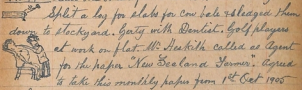 Split a log for slabs for cow bale & sledged them
down to stockyard. Gerty with Dentist. Golf players
at work on flat. Mr Heskith called as Agent
for the paper New Zealand Farmer. Agreed
to take this monthly paper from 1st Oct 1905